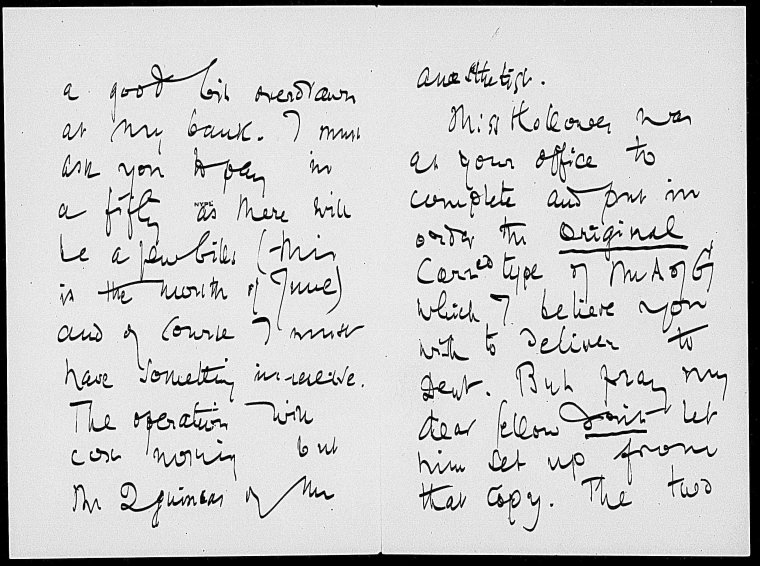 a good bit overdrawn
at my bank. I must
ask you to pay in
a fifty as there will
be a few bills (this
is the month of June)
and of course I must
have something in reserve.
The operation will
cost nothing but
the 2 guineas of the
anæsthetist.
Miss Hallowes was
at your office to
complete and put in
order the original
Corr<sup>ed</sup> type of The A of G
which I believe you
wish to deliver to
Dent. But pray my
dear fellow don't let
him set up from
that copy. The two